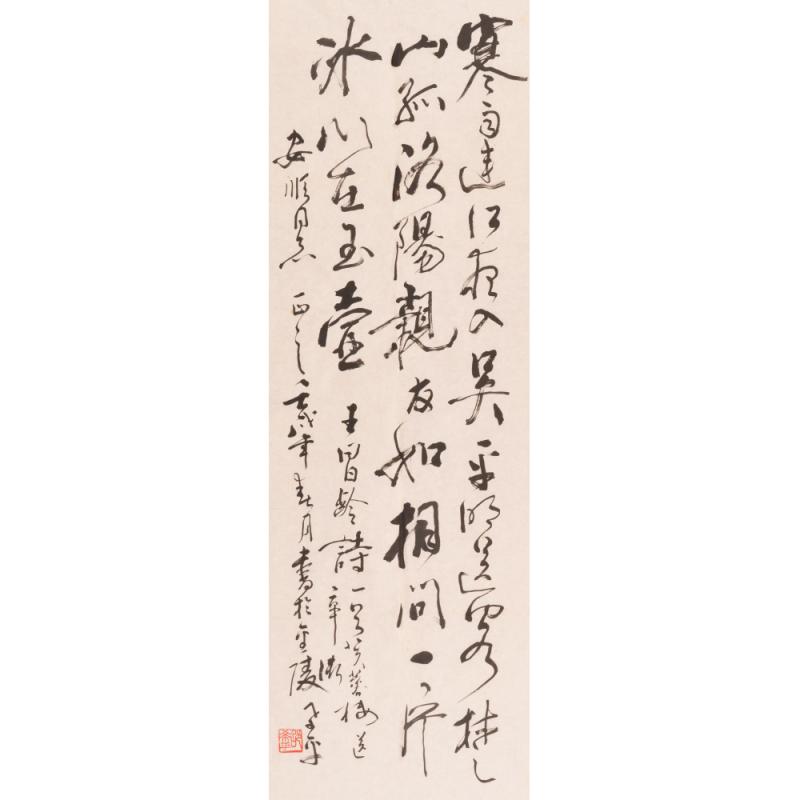 寒雨連江夜入吳平明送客楚
山孤洛陽親友如相問一片
冰心在玉壺 王昌齡詩一首芙蓉樓送
辛漸
安順同志正之 壬戌年春月書於金陵